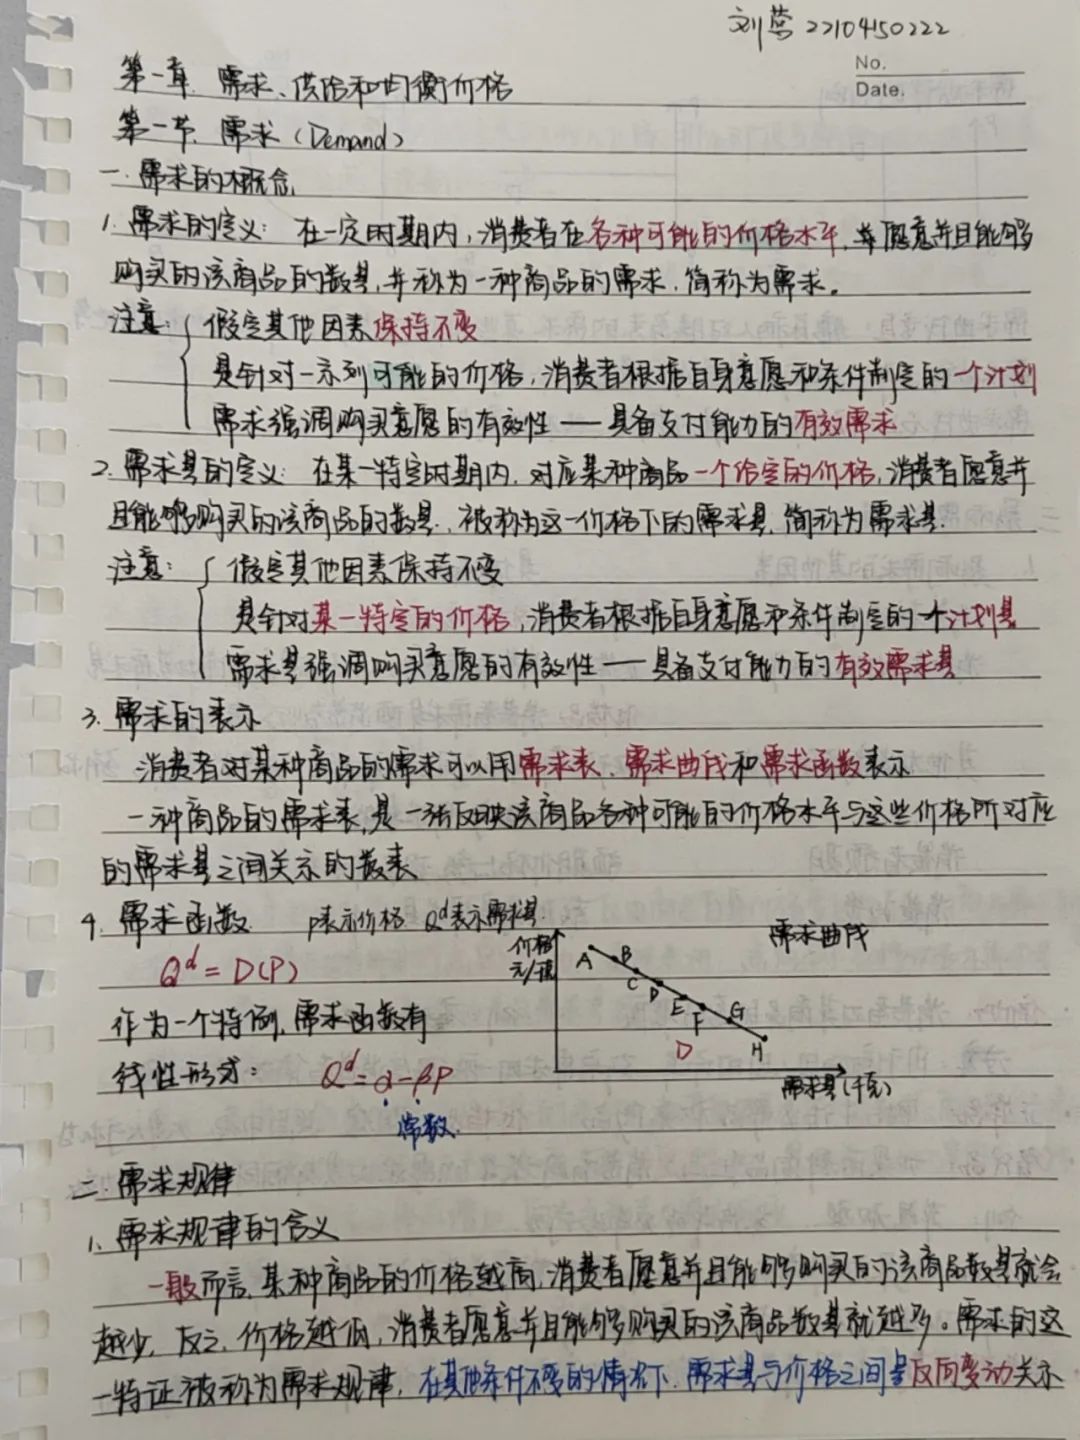 刘营 22104150222
No.
Date.
第一章 需求、供给和均衡价格
第一节 需求(Demand)
一.需求的概念
1.需求的定义:在一定时期内,消费者在各种可能的价格水平,愿意并且能够
购买的该商品的数量,并称为一种商品的需求.简称为需求。
注意: 假定其他因素保持不变
是针对一系列可能的价格,消费者根据自身意愿和条件制定的一个计划
需求强调购买意愿的有效性——具备支付能力的有效需求
2.需求量的定义:在某一特定时期内.对应某种商品一个给定的价格,消费者愿意并
且能够购买的该商品的数量.被称为这一价格下的需求量,简称为需求量.
注意: 假定其他因素保持不变
是针对某一特定的价格,消费者根据自身意愿和条件制定的一个计划量
需求量强调购买意愿的有效性——具备支付能力的有效需求量
3.需求的表示
消费者对某种商品的需求可以用需求表.需求曲线和需求函数表示
一种商品的需求表,是一张反映该商品各种可能的价格水平与这些价格所对应
的需求量之间关系的数表
4.需求函数 P表示价格 Qᵈ表示需求量
Qᵈ=D(P)
作为一个特例,需求函数有
线性形式: Qᵈ=α-βP
常数.
需求曲线
价格
元/
A B C D E F G H
D
需求量(千克)
二.需求规律
1.需求规律的含义
一般而言,某种商品的价格越高,消费者愿意并且能够购买的该商品数量就会
越少,反之,价格越低,消费者愿意并且能够购买的该商品数量就越多。需求的这
一特征被称为需求规律,在其他条件不变的情况下.需求量与价格之间呈反向变动关系